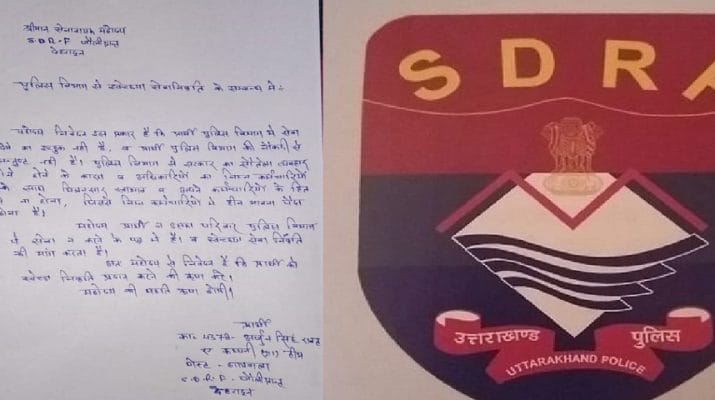 श्रीमान सेनानायक महोदय
S.D.R.F जौलीग्रान्ट
देहरादून
पुलिस विभाग से स्वेच्छा सेवानिवृति के सम्बन्ध में:-
महोदय निवेदन इस प्रकार है कि प्रार्थी पुलिस विभाग में सेवा
का इच्छुक नही है, व प्रार्थी पुलिस विभाग की नौकरी से
नही है। पुलिस विभाग से सरकार का सौतेला व्यवहार
होने के कारण व अधिकारियों का निम्न कर्मचारियों
व अपने कर्मचारियों के हित
न होना, जिससे निम्न कर्मचारियों मे हीन भावना पैदा
होना है।
महोदय प्रार्थी व उसका परिवार पुलिस विभाग
में सेवा न करने के पक्ष में है। व स्वेच्छा सेवा निवृति
की मांग करता है।
अतः महोदय से निवेदन है कि प्रार्थी को
स्वेच्छा निवृति प्रदान करने की कृपा करें।
महोदय की महति कृपा होगी।
प्रार्थी
का० 4372- सिंह
ए कम्पनी टीम
पोस्ट -
S.D.R.F. जौलीग्रान्ट
देहरादून
SDRF
उत्तराखण्ड पुलिस
UTTARAKHAND POLICE